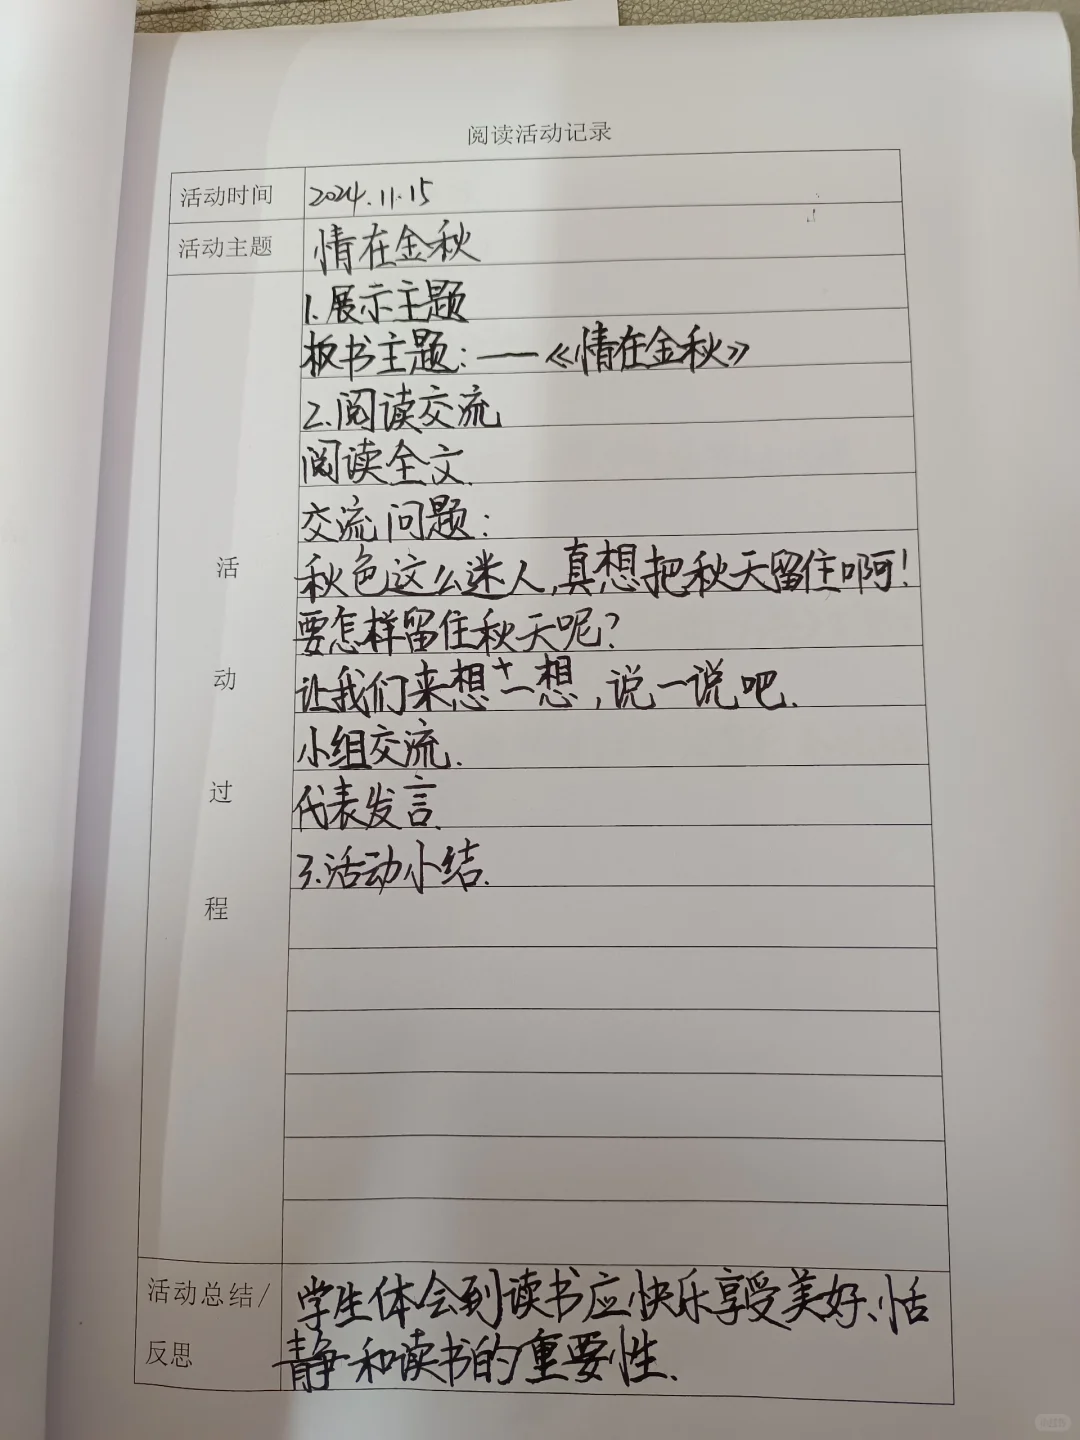 阅读活动记录
活动时间 2024.11.15
活动主题 情在金秋
活动过程
1.展示主题
板书主题:——《情在金秋》
2.阅读交流
阅读全文.
交流问题:
秋色这么迷人,真想把秋天留住啊!
要怎样留住秋天呢?
让我们来想一想,说一说吧.
小组交流.
代表发言.
3.活动小结.
活动总结/反思
学生体会到读书应快乐享受美好、恬
静和读书的重要性.